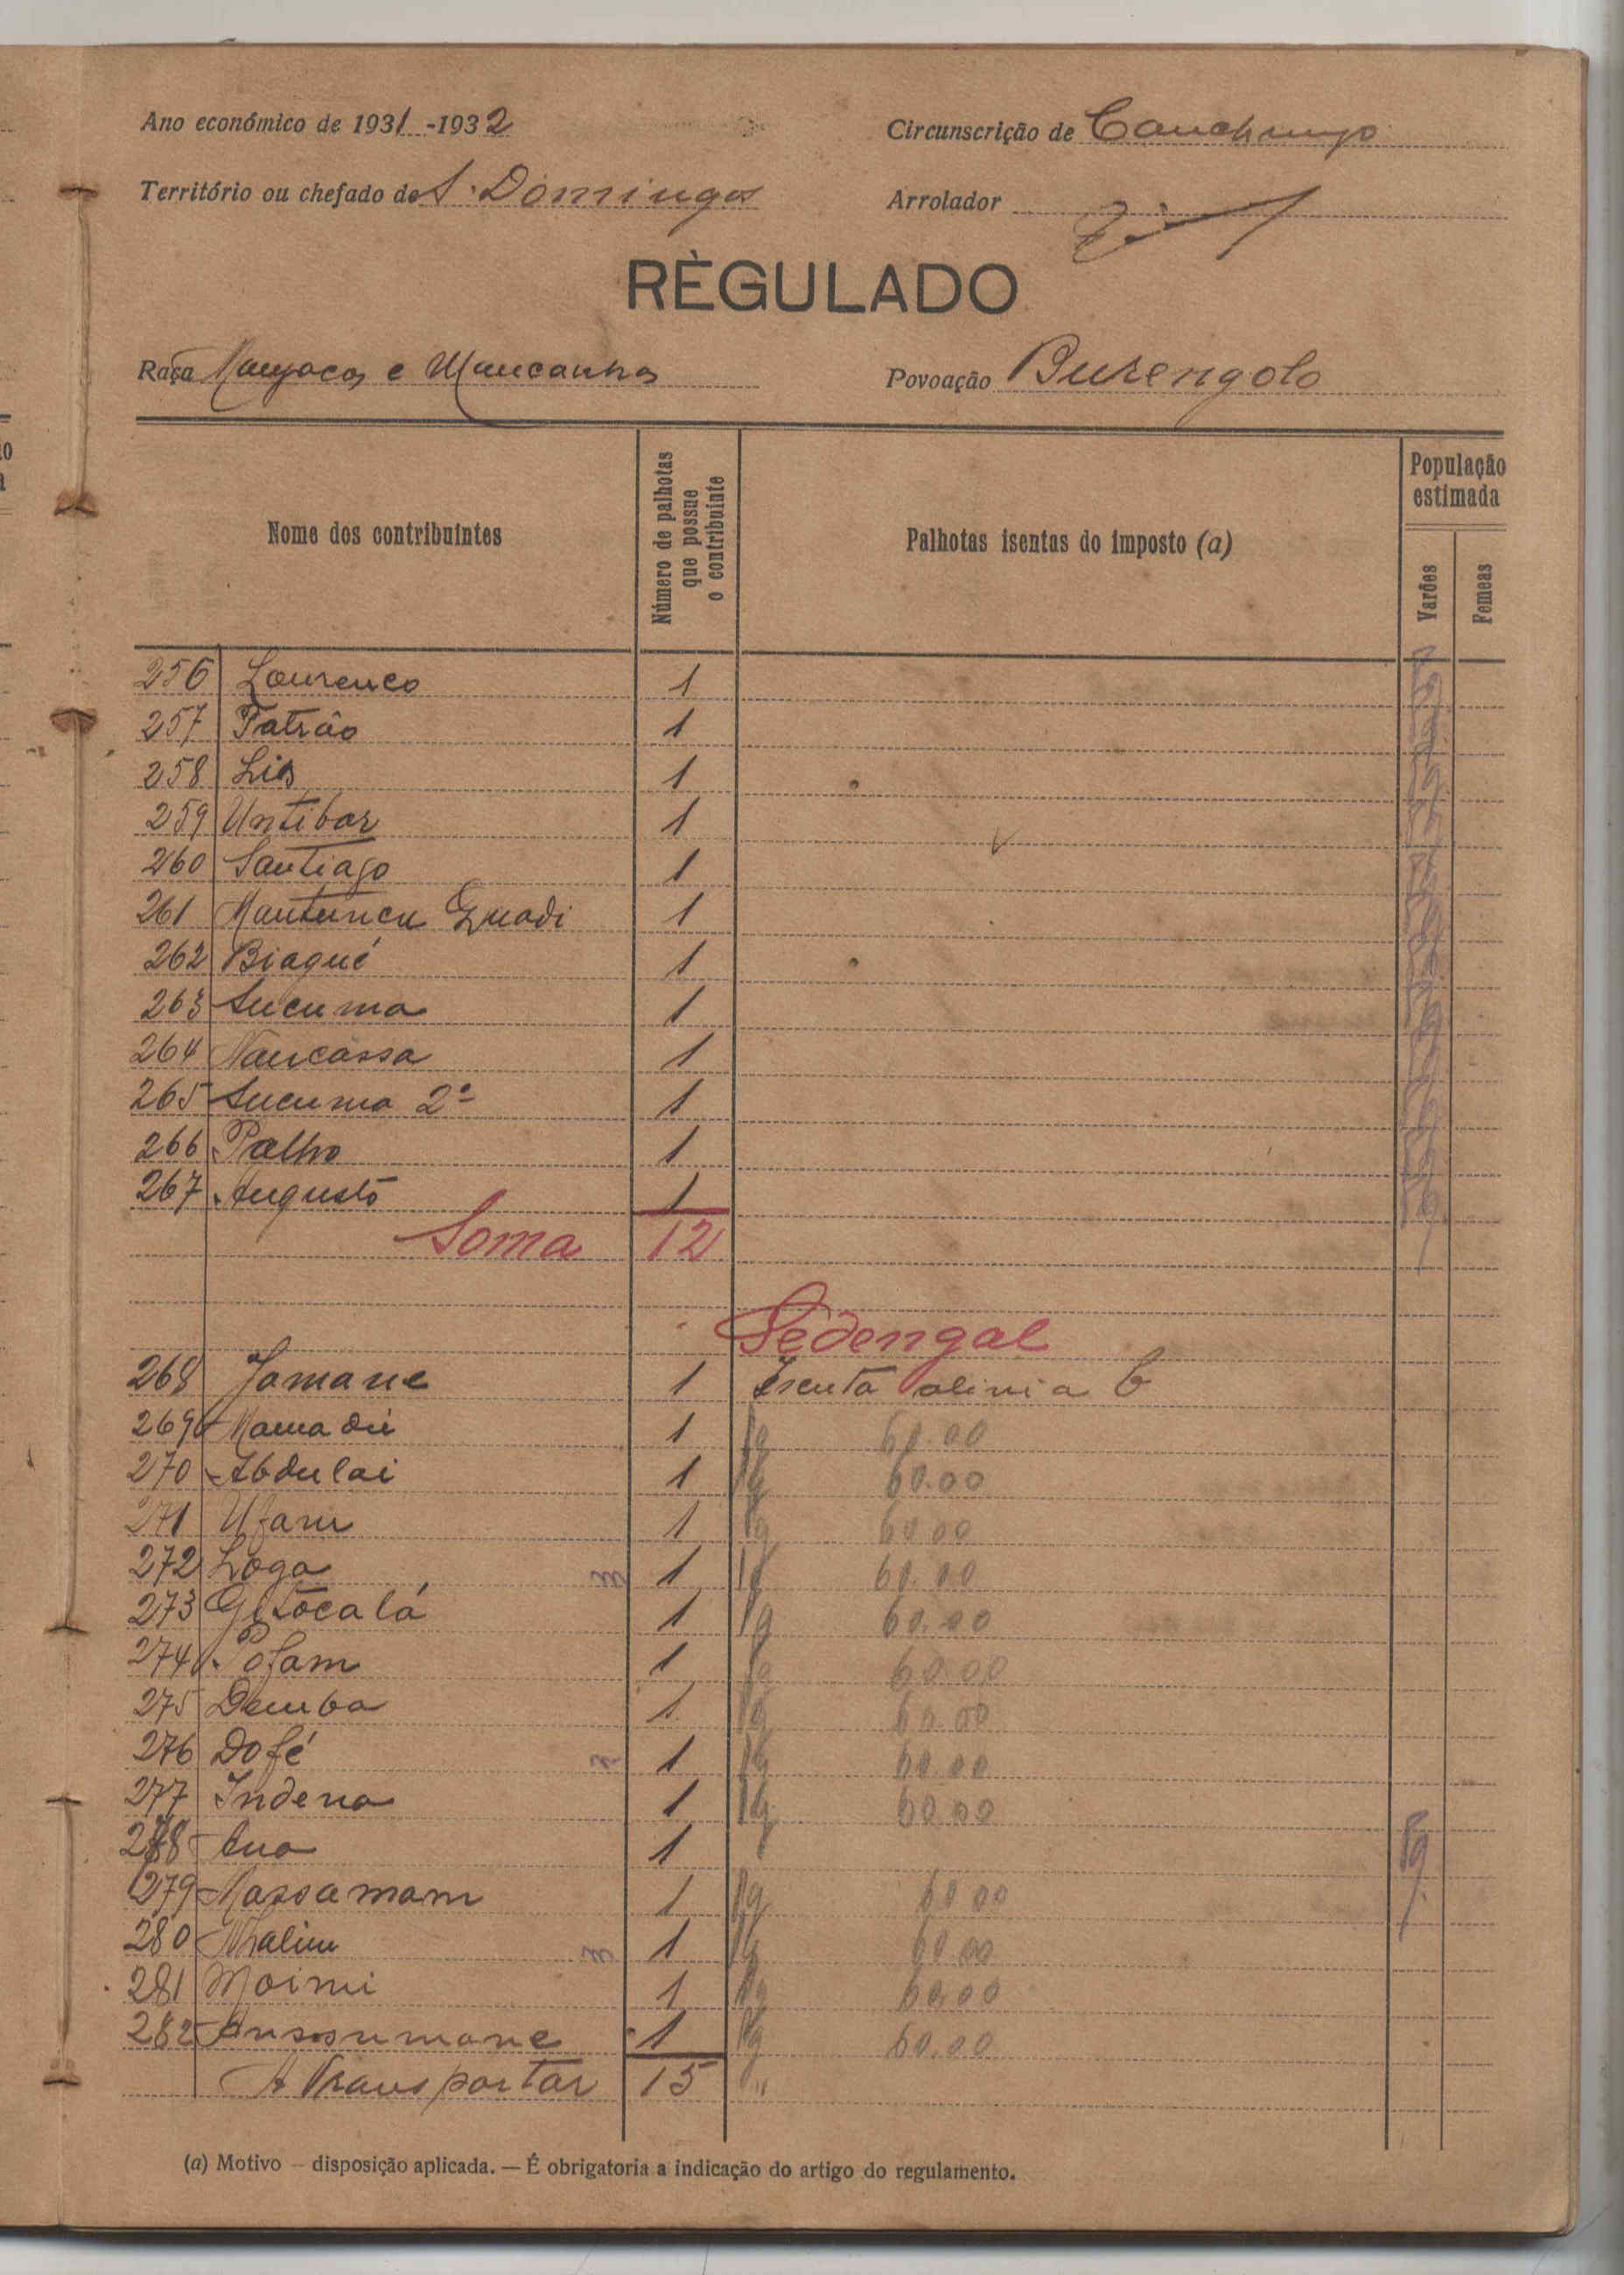 Ano económico de 1931-1932
Circunscrição de Canchungo
Território ou chefado de S. Domingos
Arrolador
RÈGULADO
Raça Manjacos e Mancanhas
Povoação Burengolo
Nome dos contribuintes
Número de palhotas que possue o contribuinte
Palhotas isentas do imposto (a)
População estimada
Varões
Femeas
256 Lourenco 1
257 Patrão 1
258 Lis 1
259 Untibar 1
260 Santiago 1
261 Mantuncu Guadi 1
262 Biagué 1
263 Sucuma 1
264 Nancassa 1
265 Sucuma 2º 1
266 Palho 1
267 Augusto 1
Soma 12
Sedengal
268 Jomane 1 Isenta alinia b
269 Mamadú 1 Pg 60.00
270 Abdulai 1 Pg 60.00
271 Ufam 1 Pg 60.00
272 Loga 3 1 Pg 60.00
273 1 Pg 60.00
274 Pofam 1 Pg 60.00
275 Demba 1 Pg 60.00
276 Dofé 1 Pg 60.00
277 Indena 1 Pg 60.00
278 Ana 1 Pg
279 Massamam 1 Pg 60.00
280 3 1 Pg 60.00
281 Moimi 1 Pg 60.00
282 Anssumane 1 Pg 60.00
A Transportar 15 "
(a) Motivo – disposição aplicada. — É obrigatoria a indicação do artigo do regulamento.